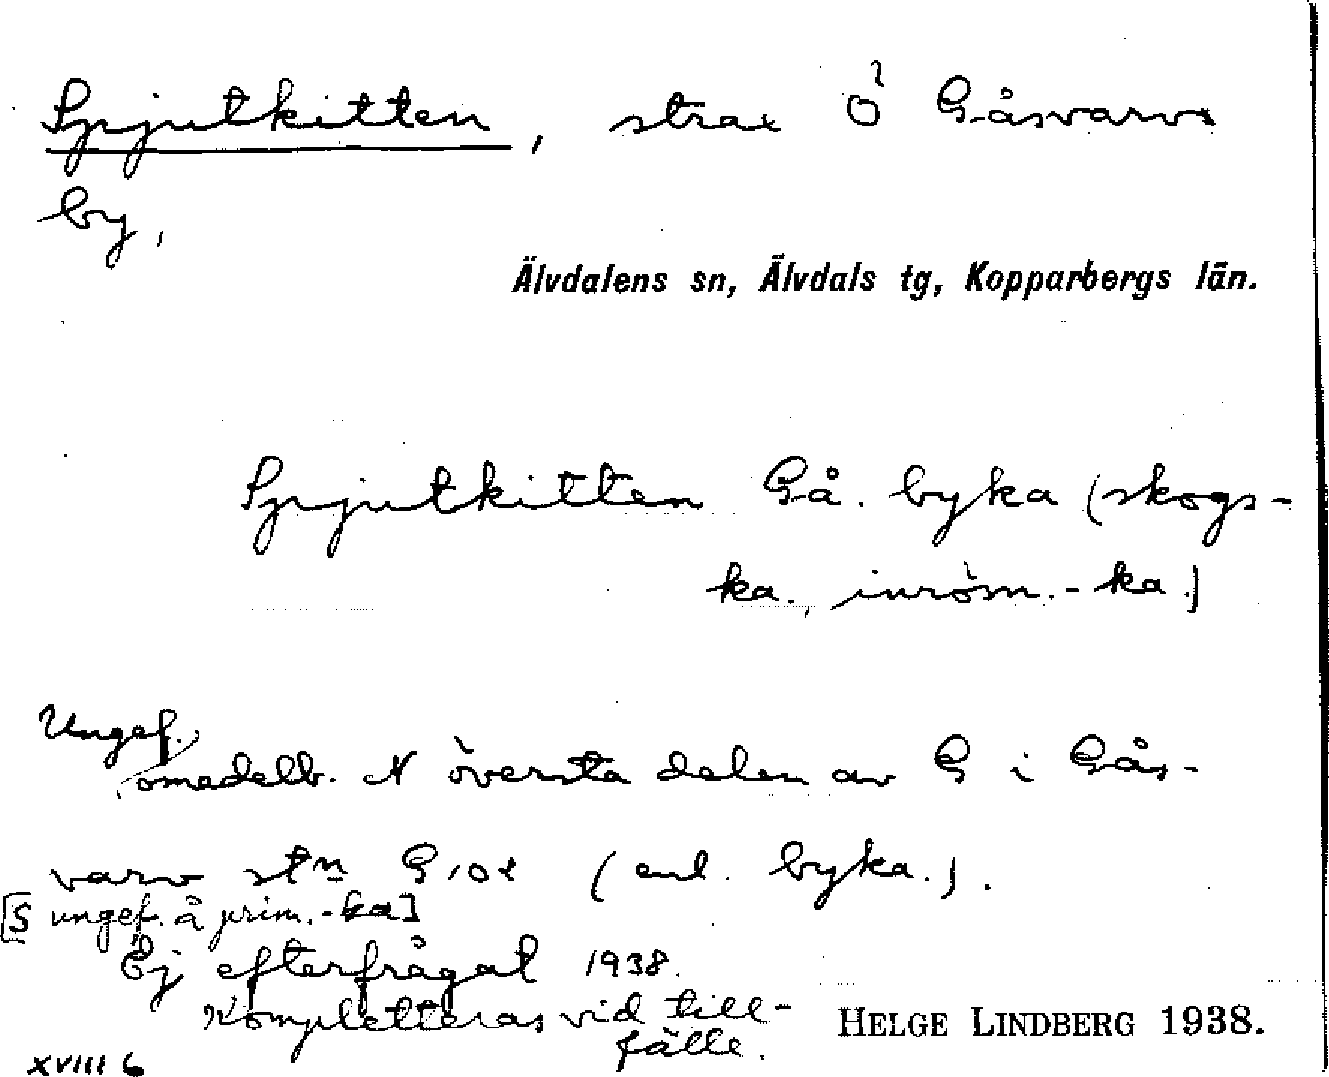 Spjutkitten, strax Ö Gåsvarvs
by,
Älvdalens sn, Älvdals tg, Kopparbergs län.
Spjutkitten Gå. byka (skogs-
ka., inröm.-ka.)
Ungef.
omedelb. N översta delen av G i Gås-
varv stn G 101 (enl. byka.).
[S ungef. å prim.-ka]
Ej efterfrågat 1938.
Kompletteras vid till-
fälle.
HELGE LINDBERG 1938.
XVIII 6